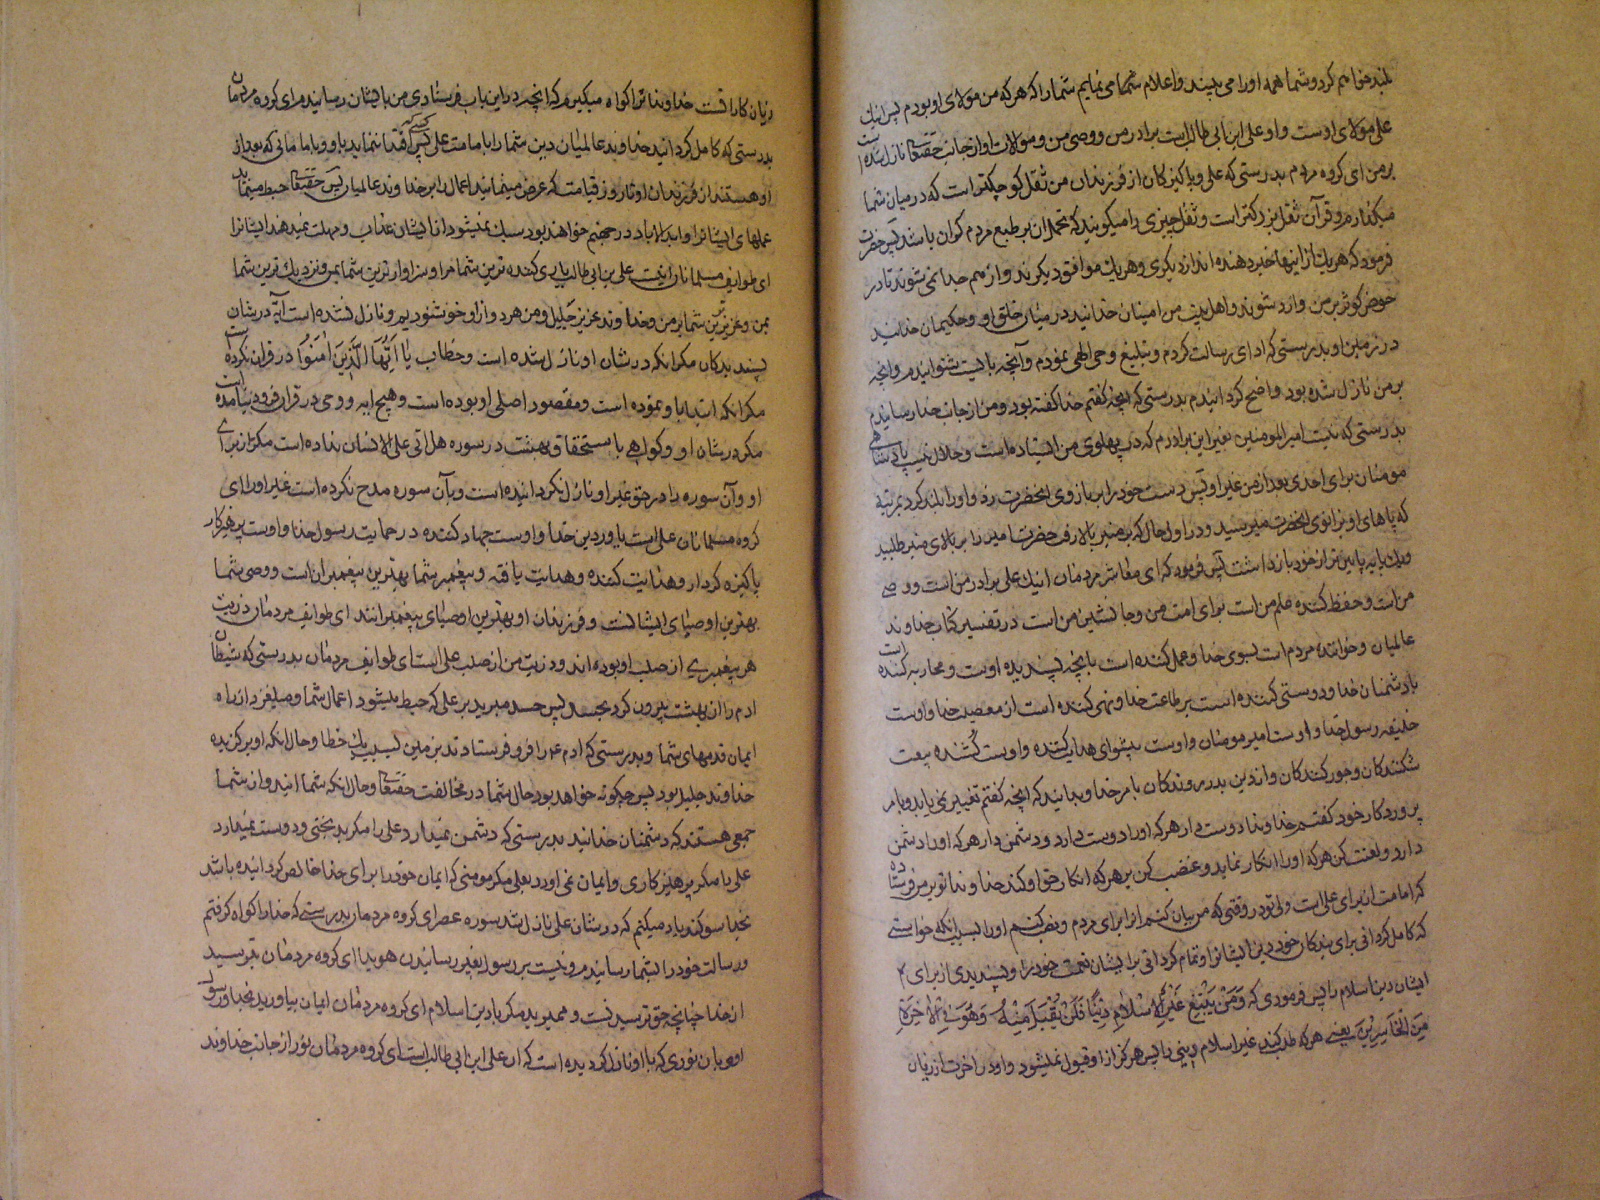 بلند خواهم کرد و شما همه او را می بینید و اعلام شما می نمایم شما را که هر که من مولای او بودم پس اینک
علی مولای اوست و او علی ابن ابی طالب است برادر من و وصی من و موالات او از جانب حقتعالی نازل شده است
بر من ای گروه مردم بدرستی که علی و پاکیزکان از فرزندان من ثقل کوچکتر است که در میان شما
میکذارم و قرآن ثقل بزرکتر است و ثقل چیزی را میکویند که تحمل ان بر طبع مردم کران باشد پس حضرت
فرمود که هر یک از اینها خبر دهنده اند از دیکری و هر یک موافق دیکرند و از هم جدا نمی شوند تا در
حوض کوثر بر من وارد شوند و اهل بیت من امینان خدا اند در میان خلق او و حکیمان خدا اند
در زمین او بدرستی که ادای رسالت کردم و تبلیغ وحی الهی نمودم و آنچه بایست شنوانیدم و انچه
بر من نازل شده بود واضح کردانیدم بدرستی که انچه کفتم خدا کفته بود و من از جانب خدا رسانیدم
بدرستی که نیست امیر المومنین بغیر این برادرم که در پهلوی من ایستاده است و حلال نیست پادشاهی
مومنان برای احدی بعد از من غیر او پس دست خود را بر بازوی انحضرت زد و او را بلند کرد بمرتبه
که پاهای او بزانوی انحضرت میرسید و در اول حال که بر منبر بالا رفت حضرت امیر را بر بالای منبر طلبید
و یک پایه پایین تر از خود باز داشت پس فرمود که ای معاشر مردمان اینک علی برادر من است و وصی
من است و حفظ کننده علم من است برای امت من و جانشین من است در تفسیر کتاب خداوند
عالمیان و خواننده مردم است بسوی خدا و عمل کننده است بانچه پسندیده اوست و محاربه کننده است
با دشمنان خدا و دوستی کننده است بر طاعت خدا و نهی کننده است از معصیت خدا و اوست
خلیفه رسول خدا و اوست امیر مومنان و اوست پیشوای هدایت کننده و اوست کُشنده بیعت
شکنندکان و جور کنندکان و از دین بدر روندکان بامر خدا و بدانید که انچه کفتم تغییر نمی یابد و بامر
پروردکار خود کفتم خداوندا دوست دار هر که او را دوست دارد و دشمن دار هر که او را دشمن
دارد و لعنت کن هر که او را انکار نماید و غضب کن بر هر که انکار حق او کند خداوندا تو بر من فرستاده
که امامت از برای علی است ولی تو در وقتی که من بیان کنم انرا برای مردم و نصب کنم او را بسبب انکه خواستی
که کامل کردانی برای بندکان خود دین ایشانرا و تمام کردانی بر ایشان نعمت خود را و پسندیدی از برای
ایشان دین اسلام را پس فرمودی که وَمَنْ یَبْتَغِ غَیْرَ الْاِسْلَامِ دِیْنًا فَلَنْ یُقْبَلَ مِنْهُ وَهُوَ فِی الْاٰخِرَةِ
مِنَ الْخَاسِرِیْنَ یعنی هر که طلب کند غیر اسلام دینی را پس هرکز از او قبول نمیشود و او در اخرت از زیان
زیان کارانست خداوندا ترا کواه میکیرم که انچه در این باب فرستادی من بایشان رسانیدم ای کروه مردمان
بدرستی که کامل کردانید خداوند عالمیان دین شما را بامامت علی پس کسی که اقتدا ننماید باو و با امامانی که بعد از
او هستند از فرزندان او تا روز قیامت که عرض مینمایند اعمال را بر خداوند عالمیان پس حقتعالی حبط مینماید
عملهای ایشانرا و ابد الاباد در جهنم خواهند بود سبک نمیشود از ایشان عذاب و مهلت نمیدهند ایشانرا
ای طوایف مسلمانان اینست علی بن ابی طالب یاری کننده ترین شما مرا و سزاوار ترین شما بمن و نزدیک ترین شما
بمن و عزیز ترین شما بر من و خداوند عزیز جلیل و من هر دو از او خوشنودیم و نازل نشده است آیه در شان
پسندیدکان مکر انکه در شان او نازل شده است و خطاب یَا اَیُّهَا الَّذِینَ اٰمَنُوا در قران نکرده است
مکر انکه ابتدا باو نموده است و مقصود اصلی او بوده است و هیچ ایه و وحی در قران فرود نیامده است
مکر در شان او و کواهی باستحقاق بهشت در سوره هل اتی علی الانسان نداده است مکر از برای
او و آن سوره را در حق غیر او نازل نکردانیده است و بآن سوره مدح نکرده است غیر او را ای
کروه مسلمانان علی است یاور دین خدا و اوست جهاد کننده در حمایت رسول خدا و اوست پرهیزکار
پاکیزه کردار و هدایت کننده و هدایت یافته و پیغمبر شما بهترین پیغمبران است و وصی شما
بهترین اوصیای ایشانست و فرزندان او بهترین اوصیای پیغمبرانند ای طوایف مردمان ذریت
هر پیغمبری از صلب او بوده اند و ذریت من از صلب علی است ای طوایف مردمان بدرستی که شیطان
ادم را از بهشت بیرون کرد بحسد پس حسد مبرید بر علی که حبط میشود اعمال شما و میلغزد از راه
ایمان قدمهای شما و بدرستی که ادم ع را فرو فرستادند بزمین بسبب یک خطا و حال انکه او برکزیده
خداوند جلیل بود پس چکونه خواهد بود حال شما در مخالفت حقتعالی و حال انکه شما انید و از شما
جمعی هستند که دشمنان خدا اند بدرستی که دشمن نمیدارد علی را مکر بدبختی و دوست نمیدارد
علی را مکر پرهیزکاری و ایمان نمی اورد بعلی مکر مومنی که ایمان خود را برای خدا خالص کردانیده باشد
بخدا سوکند یاد میکنم که در شان علی نازل شد سوره عصر ای کروه مردمان بدرستی که خدا را کواه کرفتم
و رسالت خود را بشما رسانیدم و نیست بر رسول بغیر رسانیدن هویدا ای کروه مردمان بترسید
از خدا چنانچه حق ترسیدنست و ممیرید مکر با دین اسلام ای کروه مردمان ایمان بیاورید بخدا و رسول
او و بان نوری که با او نازل کردیده است که ان علی ابن ابی طالب است ای کروه مردمان نور از جانب خداوند